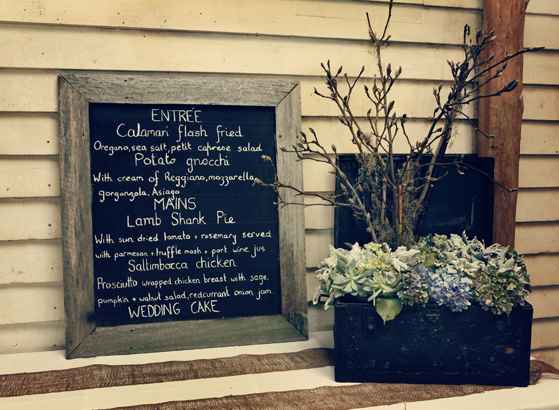 ENTRÉE
Calamari flash fried
Oregano, sea salt, petit caprese salad
Potato gnocchi
With cream of Reggiano, mozzarella,
gorgongola, Asiago
MAINS
Lamb Shank Pie
With sun dried tomato + rosemary served
with parmesan + truffle mash + port wine jus.
Saltimbocca chicken
Prosciutto wrapped chicken breast with sage.
pumpkin + walnut salad, redcurrant onion jam
WEDDING CAKE